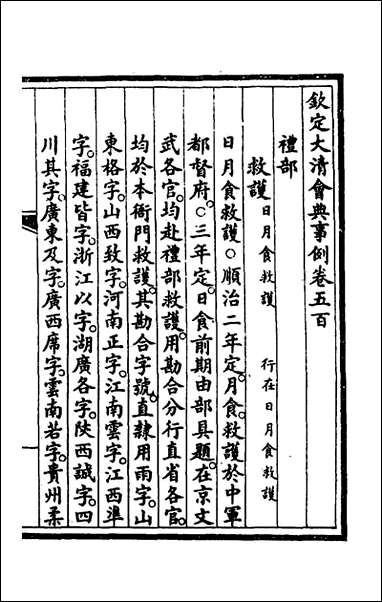 欽定大清會典事例卷五百
禮部
救護日月食救護 行在日月食救護
日月食救護○順治二年定。月食。救護於中軍
都督府。○三年定。日食前期由部具題。在京文
武各官。均赴禮部救護。用勘合分行直省各官。
均於本衙門救護。其勘合字號。直隸用雨字。山
東格字。山西致字。河南正字。江南雲字。江西準
字。福建皆字。浙江以字。湖廣各字。陝西誠字。四
川其字。廣東及字。廣西席字。雲南若字。貴州柔